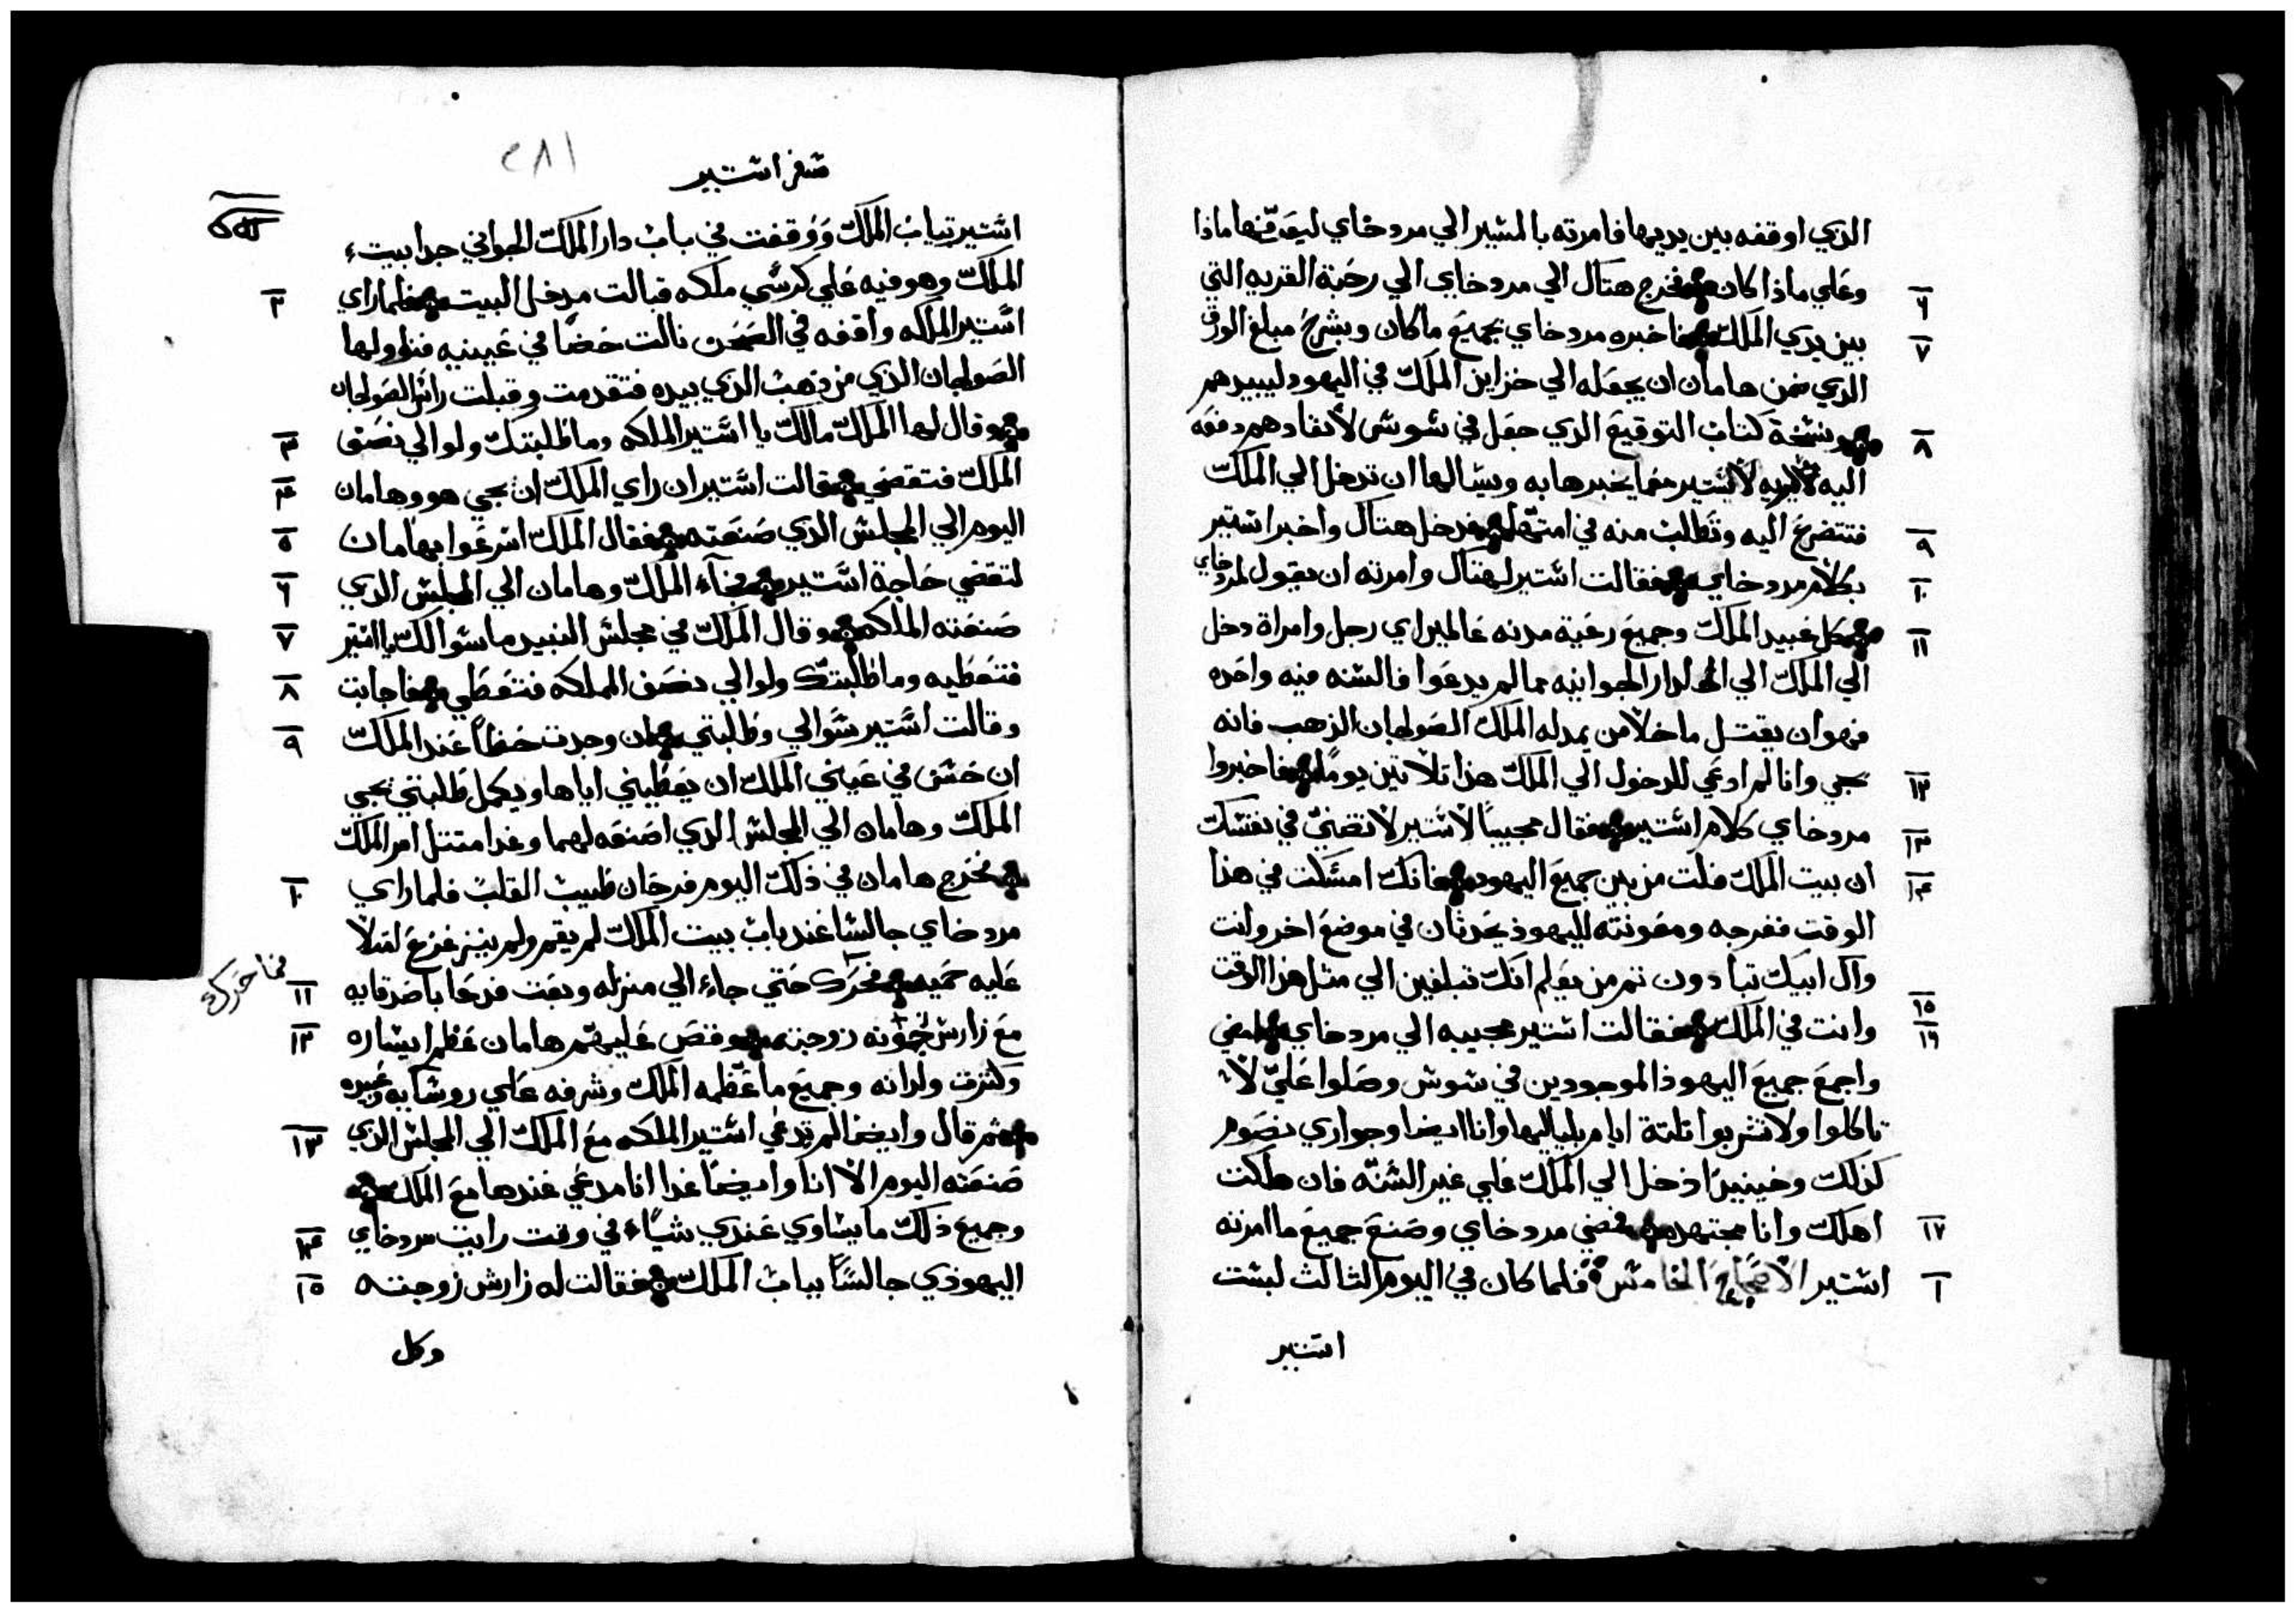 الذي اوقفه بين يديها فامرته بالمسير الي مردخاي ليعرفها ماذا
وعلي ماذا كان فخرج هتاك الي مردخاي الي رحبة القريه التي
٦
بين يدي الملك فاخبره مردخاي بجميع ماكان وبشرح مبلغ الورق
٧
الذي ضمن هامان ان يجعله الي خزاين الملك في اليهود ليبيدهم
ونسخة كتاب التوقيع الذي جعل في شوش لانفادهم دفعه
٨
اليه لاستير يخبرها به ويسالها ان تدخل الي الملك
فتتضرع اليه وتطلب منه في امتها فدخل هتاك واخبر استير
٩
بكلام مردخاي فقالت استير لهتاك وامرته ان يقول لمردخاي
١٠
كل عبيد الملك وجميع رعية مدنه عالمين اي رجل وامراة دخل
١١
الي الملك الي الدار الجوانيه ممالم يدعوا فالسنه فيه واحده
فهو ان يقتل ما خلا من يمد له الملك الصولجان الذهب فانه
يحيي وانا لم ادعي للدخول الي الملك هذا تلاتين يومًا فاخبروا
١٢
مردخاي كلام استير فقال مجيبًا لاستير لا تضني في نفسك
١٣
ان بيت الملك فلت من بين جميع اليهود فانك امسكت في هذا
١٤
الوقت ففرجه ومعونته لليهود يحدثان في موضع اخر وانت
وال ابيك تبادون تم من يعلم انك تبلغين الي مثل هذا الوقت
وانت في الملك فقالت استير مجيبه الي مردخاي امضي
١٥
١٦
واجمع جميع اليهود الموجودين في شوش وصلوا علي لا
تاكلوا ولا تشربوا تلتة ايام بلياليها وانا ايضا وجواري نصوم
كذلك وحينيدٍ ادخل الي الملك علي غير السنّه فان هلكت
اهلك وانا مجتهده فمضي مردخاي وصنع جميع ما امرته
١٧
استير الاصحاح الخامس فلما كان في اليوم الثالث لبست
١
استير
سفر استير
١٨٢
استير تياب الملك ووقفت في باب دار الملك الجواني حدا بيت
الملك وهو فيه علي كرسي ملكه قبالت مدخل البيت فلما راي
٢
استير الملكه واقفه في الصحن نالت حضا في عينيه فناولها
الصولجان الذي من ذهب الذي بيده فتقدمت وقبلت راس الصولجان
وقال لها الملك مالك يا استير الملكه وما طلبتك ولو الي نصف
٣
الملك فتقضي فقالت استير ان راي الملك ان يجي هو وهامان
٤
اليوم الي المجلس الذي صنعته فقال الملك اسرعوا بهامان
٥
لتقضي حاجة استير فجآء الملك وهامان الي المجلس الذي
٦
صنعته الملكه وقال الملك في مجلس النبيد ما سوالك يا استير
٧
فتعطيه وما طلبتك ولو الي نصف المملكه فتعطي فاجابت
٨
وقالت استير سوالي وطلبتي ان وجدت حظاً عند الملك
٩
ان حسن في عيني الملك ان يعطيني اياها ويكمل طلبتي يجي
الملك وهامان الي المجلس الذي اصنعه لهما وغدا امتتل امر الملك
فخرج هامان في ذلك اليوم فرحان طيب القلب فلما راي
١٠
مردخاي جالسا عند باب بيت الملك لم يقم ولم يتزعزع امتلا
عليه حميه فتحرك حتي جاء الي منزله وبعت فدعا باصدقايه
١١
مع زارش زوجته وقص عليهم هامان عظم ايساره
١٢
وكثرت ولدانه وجميع ما عظمه الملك وشرفه علي روسايه وعبيده
ثم قال وايضا لم تدعي استير الملكه مع الملك الي المجلس الذي
١٣
صنعته اليوم الا انا وايضًا غدا انا مدعي عندها مع الملك
وجميع ذلك ما يساوي عندي شياء في وقت رايت مردخاي
١٤
اليهودي جالسًا بباب الملك فقالت له زارش زوجته
١٥
وكل